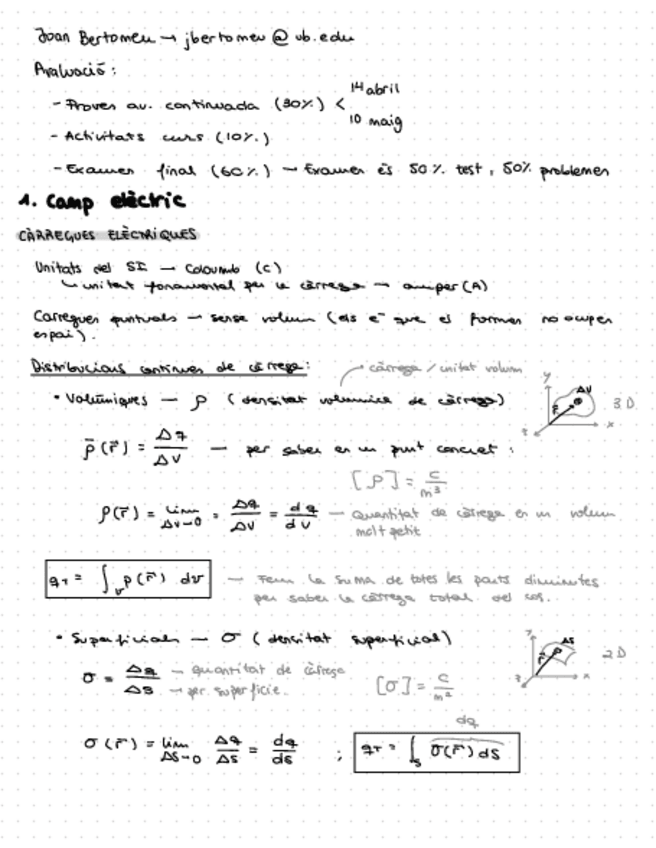 Joan Bertomeu → jbertomeu @ ub.edu
Avaluació:
- Proves av. continuada (30%) < 14 abril
10 maig
- Activitats curs (10%)
- Examen final (60%) → Examen és 50% test, 50% problemes
1. Camp elèctric
CÀRREGUES ELÈCTRIQUES
Unitats del SI → Coloumb (C)
↳ unitat fonamental per la càrrega → amper (A)
Càrregues puntuals → sense volum (els e⁻ que el formen no ocupen
espai).
Distribucions contínues de càrrega:
càrrega / unitat volum
• Volúmiques — ρ (densitat volúmica de càrrega)
y ΔV r⃗ x z 3D
ρ̄(r⃗) = Δq/ΔV — per saber en un punt concret:
[ρ] = C/m³
ρ(r⃗) = lim ΔV→0 = Δq/ΔV = dq/dV — Quantitat de càrrega en un volum
molt petit
q_T = ∫_V ρ(r⃗) dV — Fem la suma de totes les parts diminutes
per saber la càrrega total del cos.
• Superficials — σ (densitat superficial)
y ΔS r⃗ x z 2D
σ = Δq/ΔS → quantitat de càrrega
→ per superfície.
[σ] = C/m²
dq
σ(r⃗) = lim ΔS→0 Δq/ΔS = dq/dS ; q_T = ∫_S σ(r⃗) dS